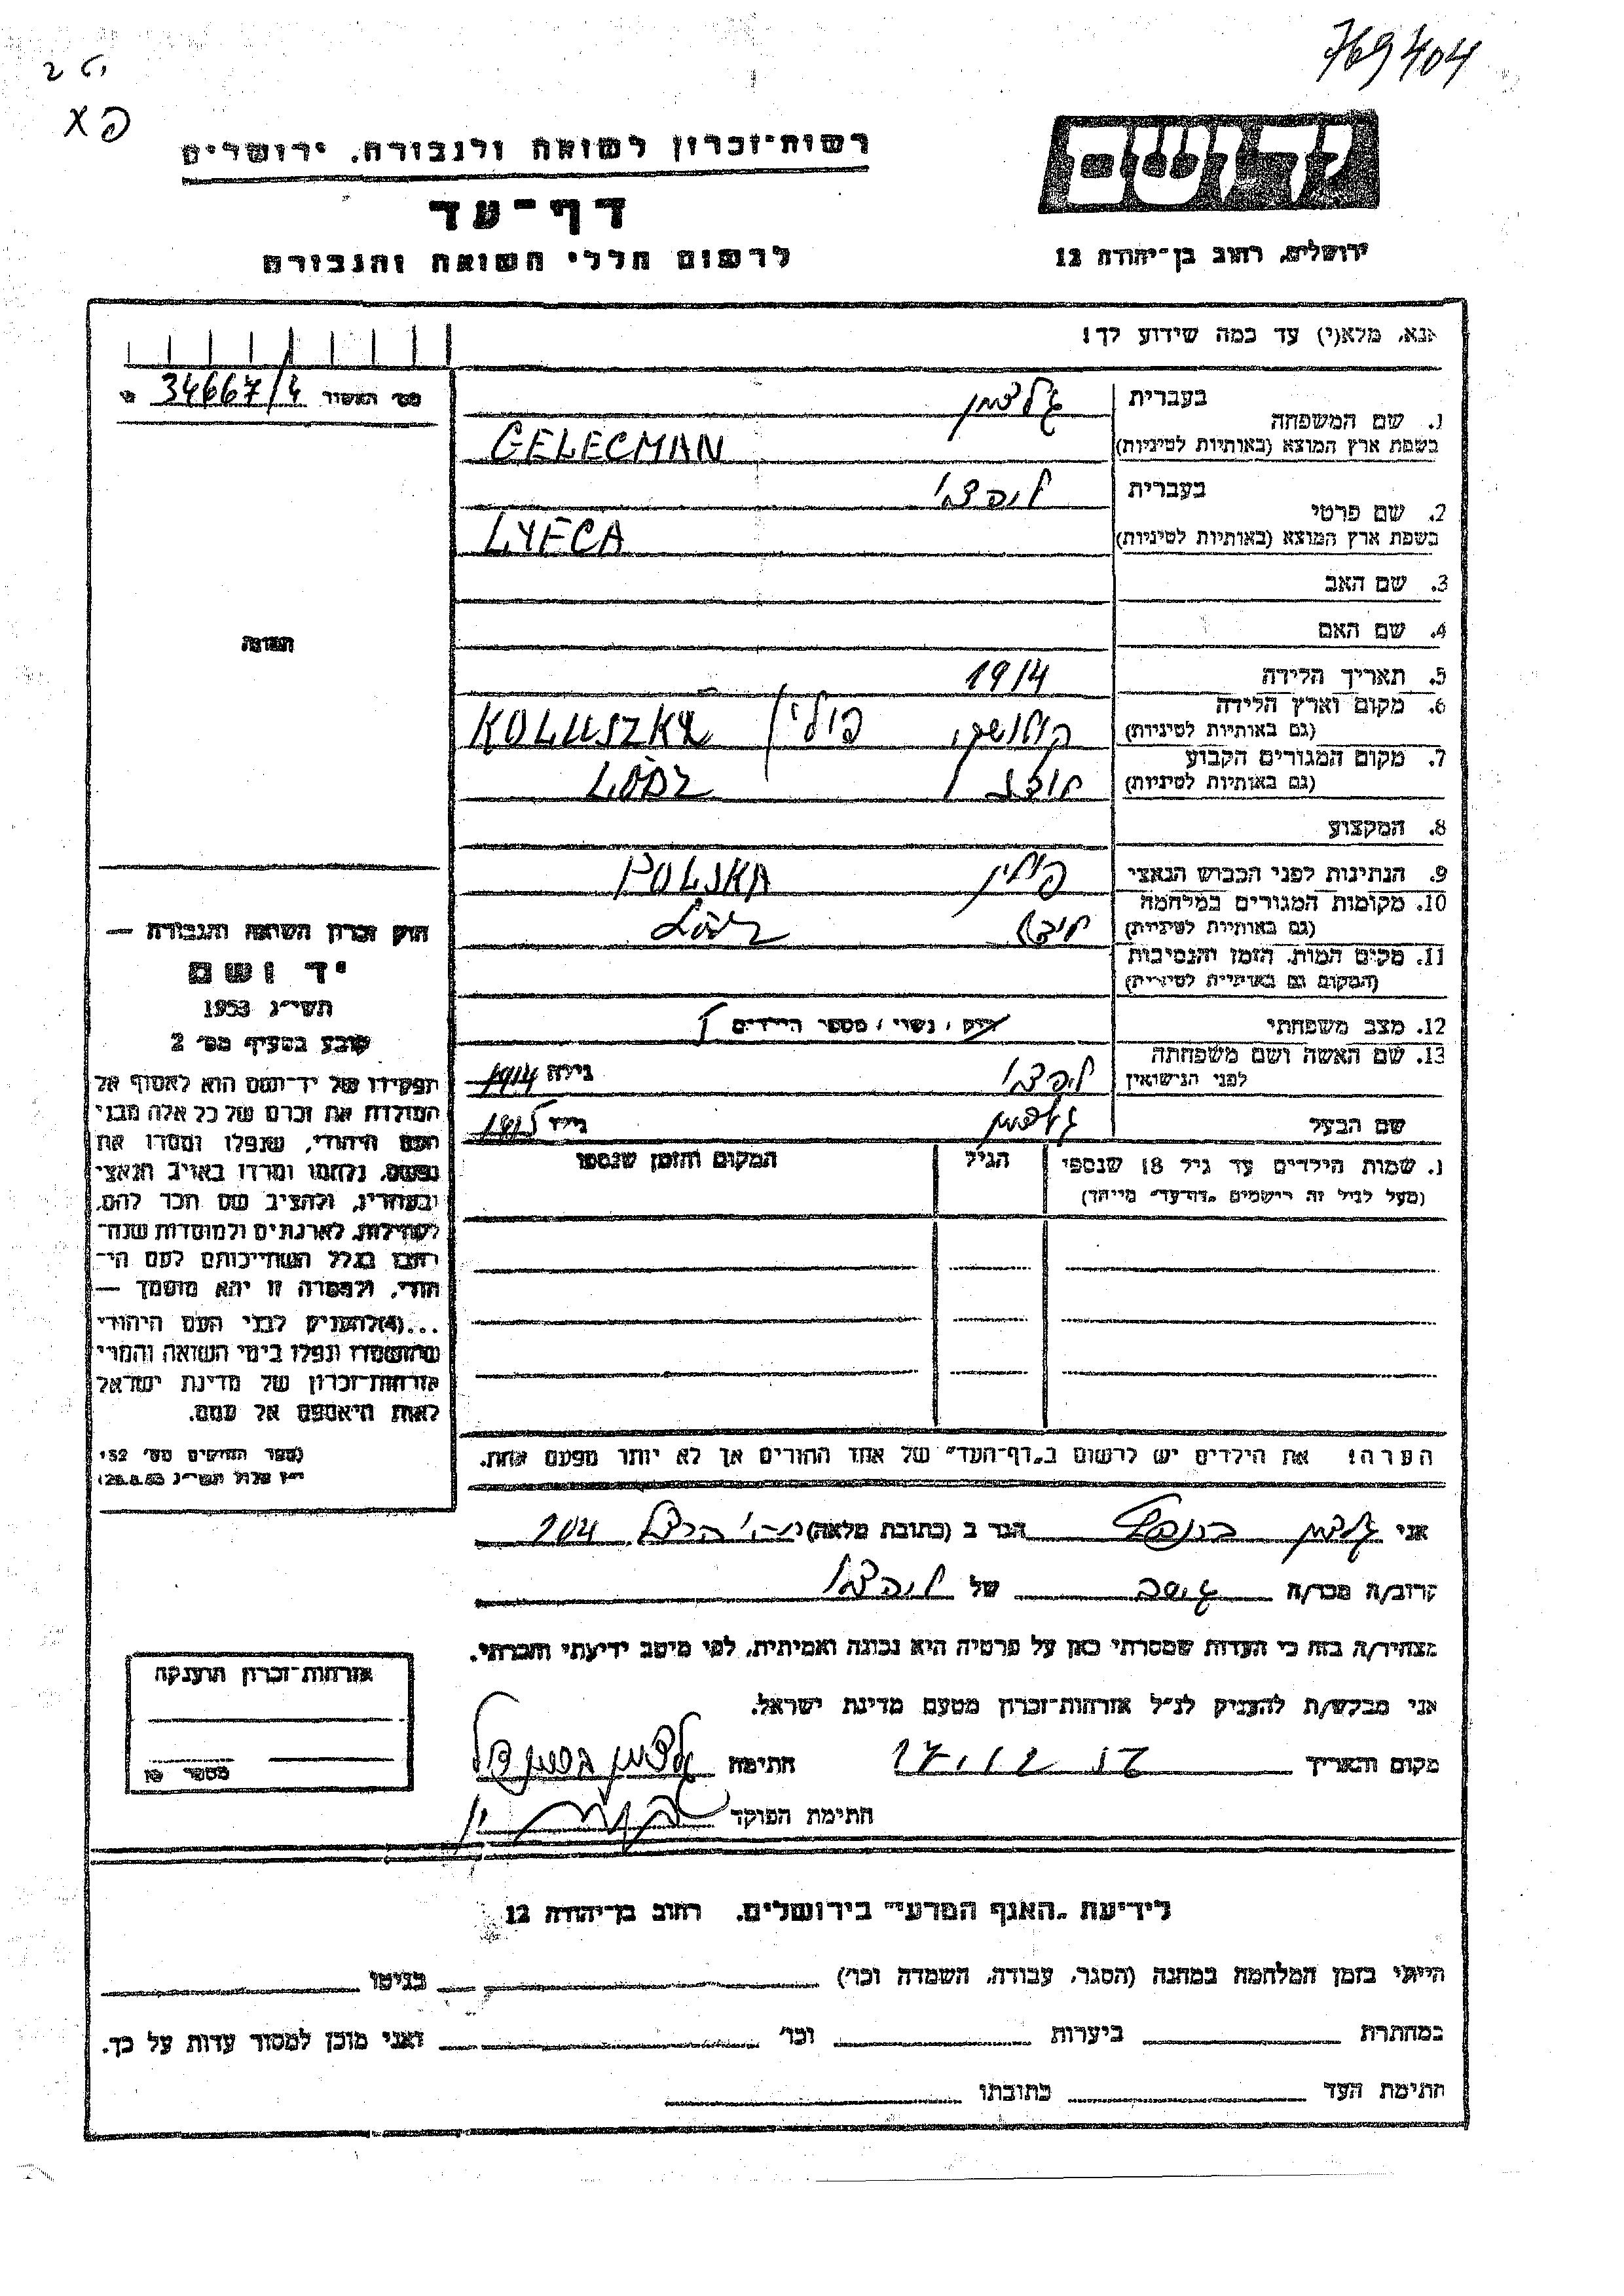 769404
רשות־זכרון לשואה ולגבורה, ירושלים
דף־עד
לרשום חללי השואה והגבורה
יד ושם
ירושלים, רחוב בן־יהודה 12
אנא, מלא(י) עד כמה שידוע לך!
מס׳ האשור 34667/4
1. שם המשפחה
בעברית גלצמן
בשפת ארץ המוצא (באותיות לטיניות) GELECMAN
2. שם פרטי
בעברית
בשפת ארץ המוצא (באותיות לטיניות) LYFCA
3. שם האב
4. שם האם
5. תאריך הלידה 1914
6. מקום וארץ הלידה
(גם באותיות לטיניות) פולין KOLUSZKI
7. מקום המגורים הקבוע
(גם באותיות לטיניות) לודז / LÓDZ
8. המקצוע
9. הנתינות לפני הכבוש הנאצי פולין POLSKA
10. מקומות המגורים במלחמה
(גם באותיות לטיניות) לודז
11. מקום המות, הזמן והנסיבות
(המקום גם באותיות לטיניות)
12. מצב משפחתי רווק / נשוי / מספר הילדים
13. שם האשה ושם משפחתה
לפני הנישואין נילה 1914
שם הבעל גלצמן גילו 1915
1. שמות הילדים עד גיל 18 שנספו
(מעל לגיל זה רישמים „דף־עד״ מייחד)
הגיל
המקום והזמן שנספו
הערה! את הילדים יש לרשום ב„דף־העד״ של אחד ההורים אך לא יותר מפעם אחת.
תמונה
חוק זכרון השואה והגבורה —
יד ושם
תשי״ג 1953
קובע בסעיף מס׳ 2
תפקידו של יד־ושם הוא לאסוף אל
המולדת את זכרם של כל אלה מבני
העם היהודי, שנפלו ומסרו את
נפשם, נלחמו ומרדו באויב הנאצי
ובעוזריו, ולהציב שם וזכר להם,
לקהילות, לארגונים ולמוסדות שנח־
רבו בגלל השתייכותם לעם הי־
הודי, ולמטרה זו יהא מוסמך —
...(4)להעניק לבני העם היהודי
שהושמדו ונפלו בימי השואה והמרי
אזרחות־זכרון של מדינת ישראל
לאות היאספם אל עמם.
(ספר החוקים מס׳ 132
י״ז אלול תשי״ג 28.8.53)
אני גלצמן הגר ב (כתובת מלאה) 204
קרוב/ה מכר/ה של
מצהיר/ה בזה כי העדות שמסרתי כאן על פרטיה היא נכונה ואמיתית, לפי מיטב ידיעתי והכרתי.
אני מבקש/ת להעניק לנ״ל אזרחות־זכרון מטעם מדינת ישראל.
מקום ותאריך חתימה גלצמן
חתימת הפוקד
אזרחות־זכרון הוענקה
מספר
לידיעת „האגף המדעי״ בירושלים, רחוב בן־יהודה 12
הייתי בזמן המלחמה במחנה (הסגר, עבודה, השמדה וכו׳) בגיטו
במחתרת ביערות וכו׳ ואני מוכן למסור עדות על כך.
חתימת העד כתובתו